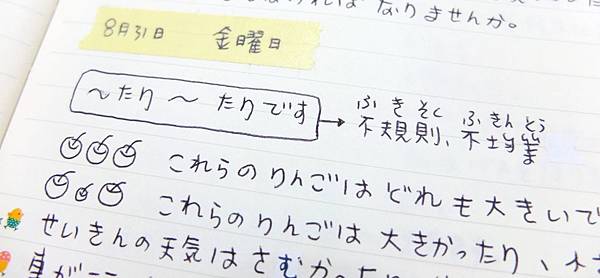 なければ なりませんか。
8月31日 金曜日
〜たり〜たりです → ふきそく ふきんとう
不規則、不均等
これらのりんごは どれも大きいで
これらのりんごは 大きかったり、
せいきんの天気は さむかった